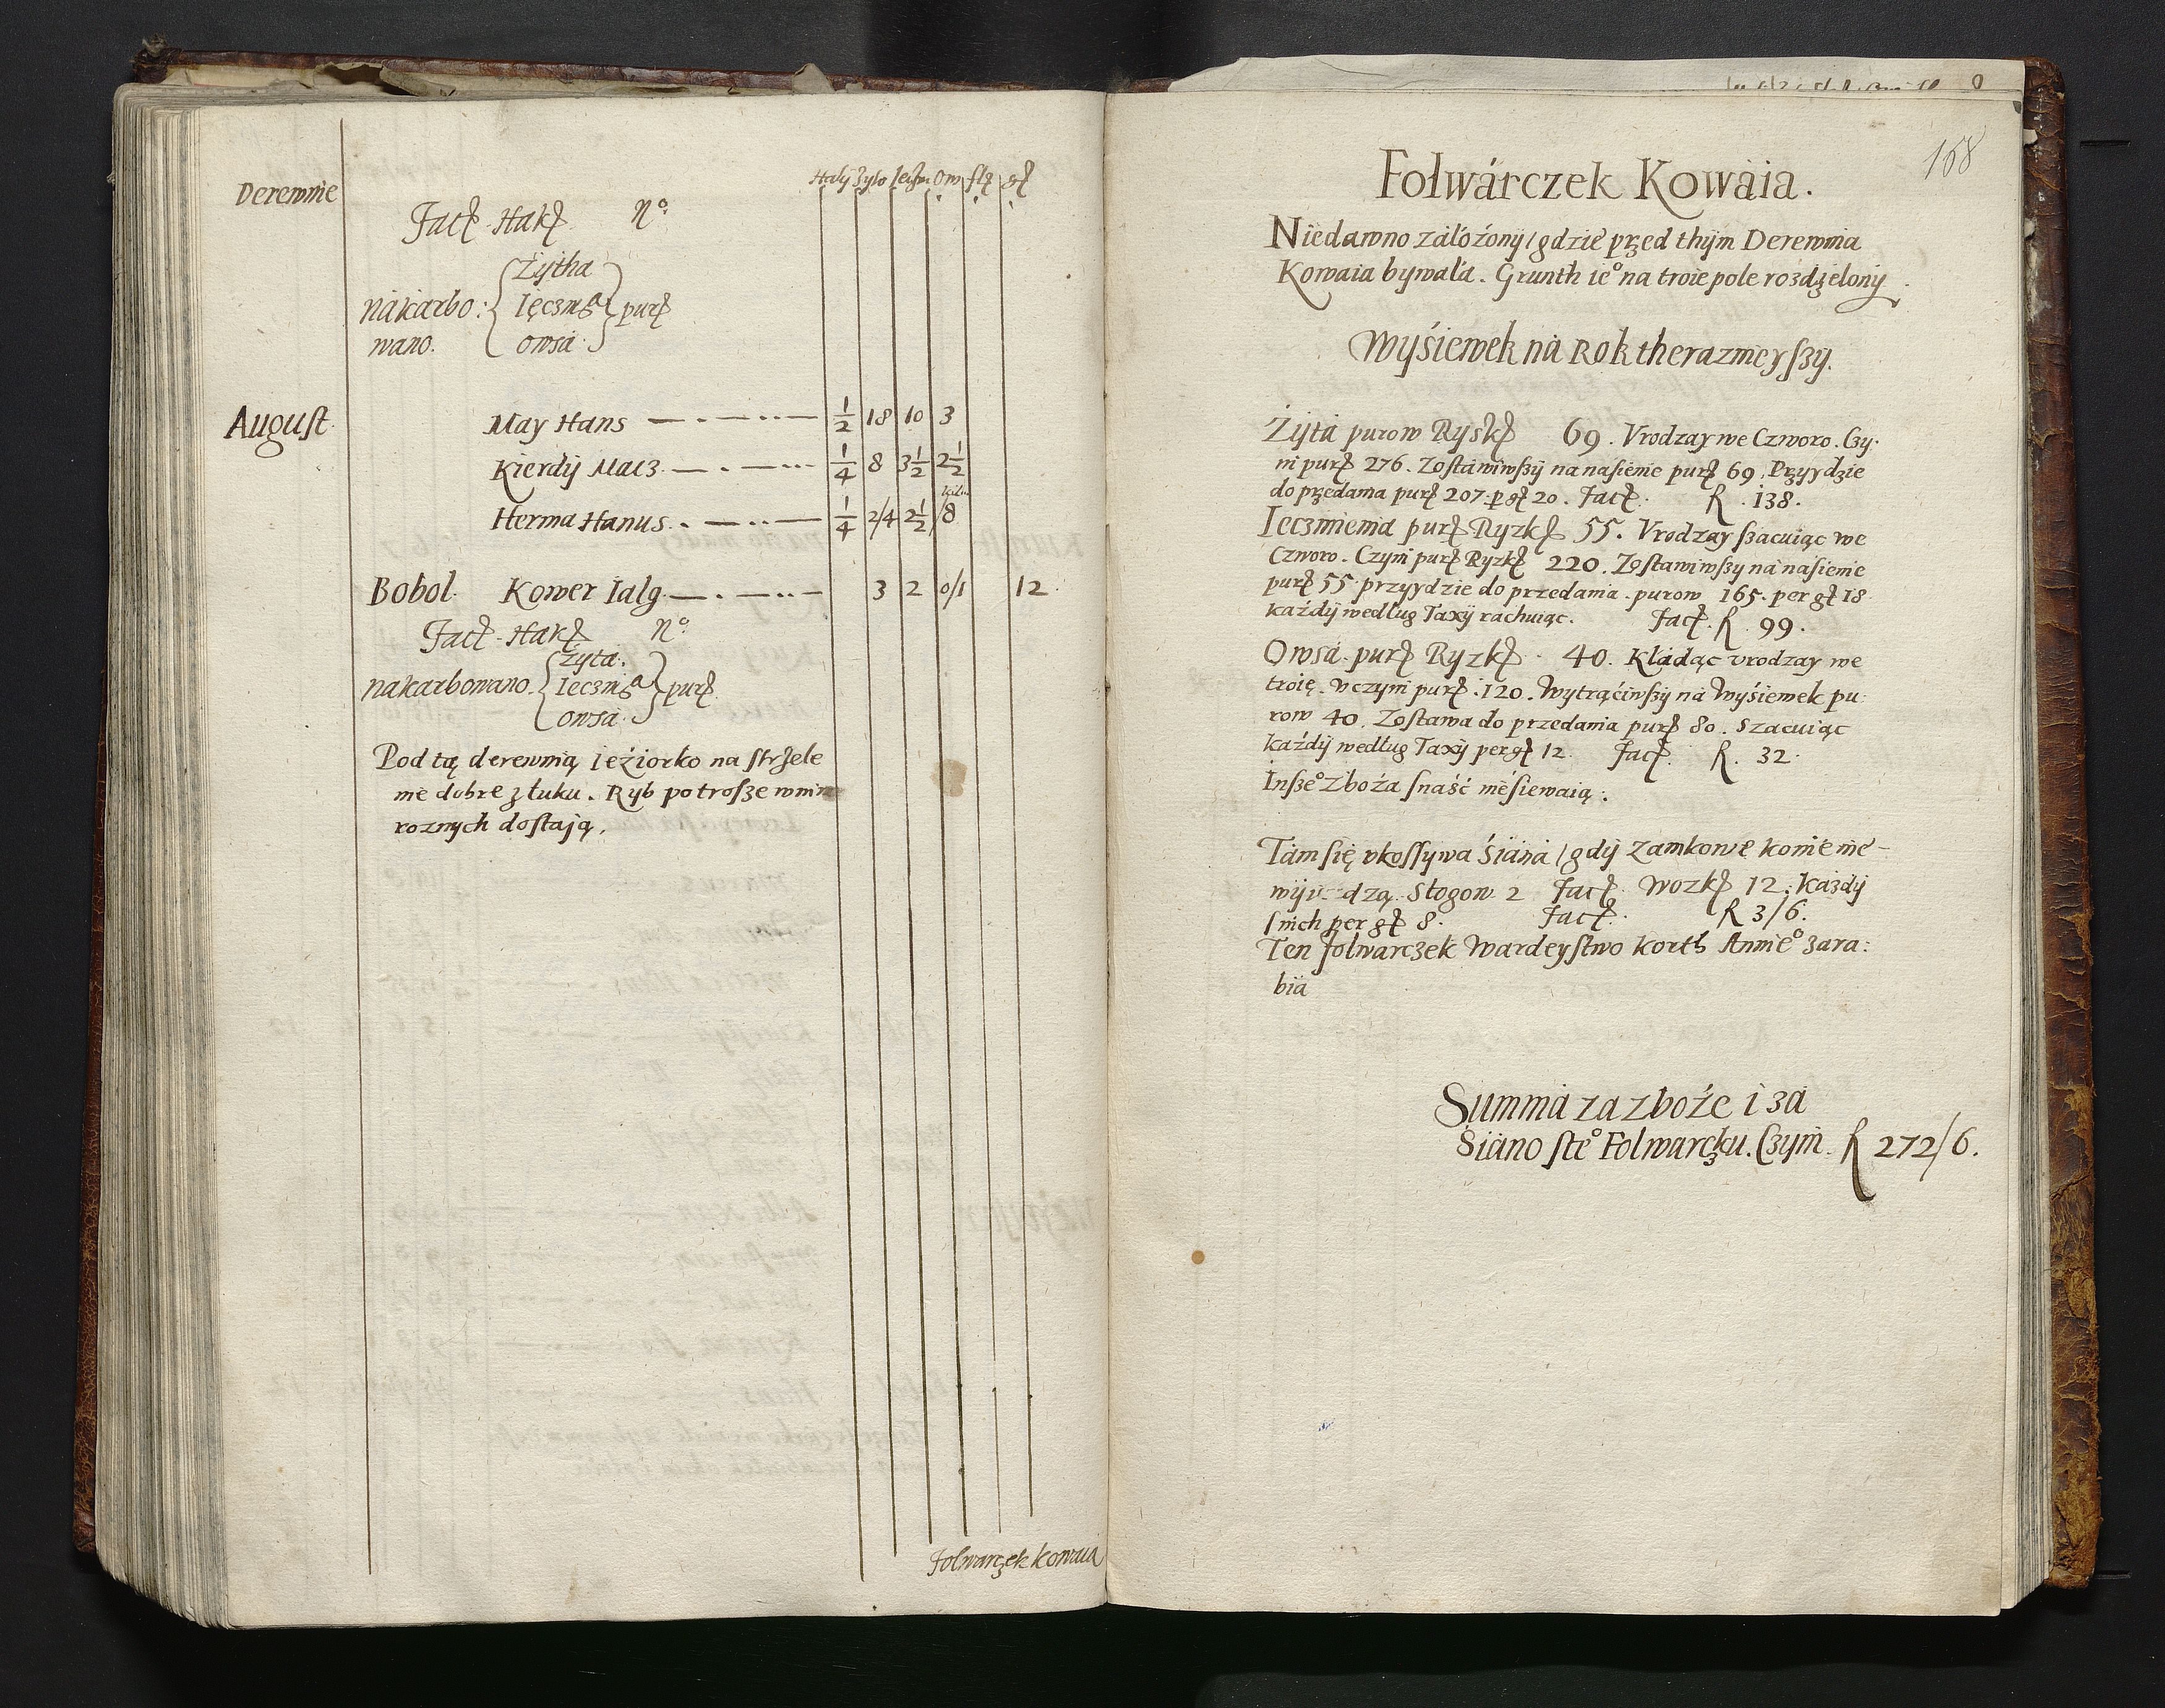 Derewnie
Haki Żyto Jęcżm Ow flꝫ gꝭ
Facꝭ Hakꝭ No
Żytha
nakarbo: Ięczmᵃ purꝭ
wano. owsa.
August May Hans 1/2 18 10 3
Kierdy Mats 1/4 8 3 1/2 2 1/2
Herma Hanus 1/4 2/4 2 1/2 /8
Bobol. Kower Ialg 3 2 0/1 12.
Facꝭ Hakꝭ No
Żyta.
nakarbowano. Ieczmᵃ purꝭ
owsa.
Pod tą derewnią ieżiorko na strzele
nie dobre z łuku. Ryb potrosze w nim
roznych dostaią.
Folwarczek Kowaia
168
Folwárczek Kowáia.
Niedawno záłożony / gdzie przed thym Derewnia
Kowaia bywała. Grunth ieº na troie pole rozdzielony
Wyśiewek ná Rok therazmeyszy.
Żytá purow Ryskꝭ 69. Vrodzay we Czworo. Czy:
ni purꝭ 276. Zostawiwszy na nasienie purꝭ 69. Przyydzie
do przedania purꝭ 207. p gꝭ 20. Facꝭ. R. 138.
Ięczmienia purꝭ Ryzkꝭ 55. Vrodzay szacuiąc we
Czworo. Czyni purꝭ Ryzkꝭ 220. Zostawiwszy ná nasienie
purꝭ 55 przyydzie do przedania. purow 165. per gꝭ 18
każdy według Taxy rachuiąc. Facꝭ. R. 99.
Owsá. purꝭ Ryzkꝭ 40. Kládąc vrodzay we
troię. vczyni purꝭ. 120. Wytrąćiwszy ná Wyśiewek pu:
row 40. Zostawa do przedania purꝭ 80. Szacuiąc
każdy według Taxy per gꝭ 12. Facꝭ. R. 32.
Inszeº Zboża snaść nie śiewaią.
Tám się vkossywa Śiáná / gdy zamkowe konie nie-
dzą. Stogow 2 Facꝭ. Wozkꝭ 12. Każdy
s nich per gꝭ 8. Facꝭ. R 3/6.
Ten folwarczek Wardeystwo Korth Annieº zara:
bia
Summá zá zboże i zá
Śiáno steº Folwarczku. Czyni. R 272/6.